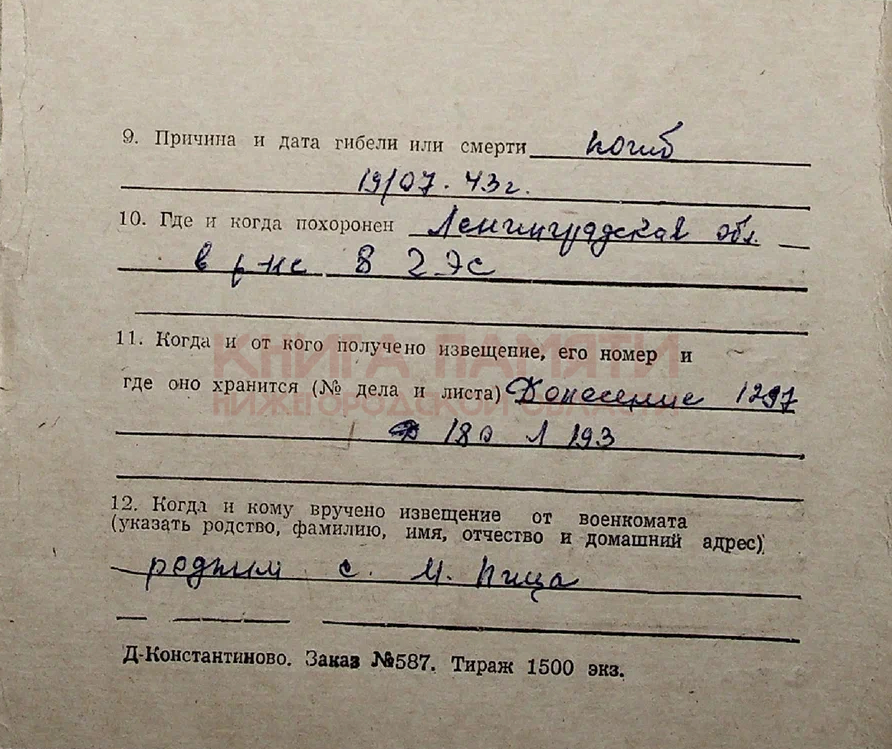 9. Причина и дата гибели или смерти погиб
19/07.43г.
10. Где и когда похоронен Ленинградская обл.
в р-не 8 ГЭС
11. Когда и от кого получено извещение, его номер и
КНИГА ПАМЯТИ
где оно хранится (№ дела и листа) Донесение 1297
НИЖЕГОРОДСКОЙ ОБЛАСТИ
180 Л 193
12. Когда и кому вручено извещение от военкомата
(указать родство, фамилию, имя, отчество и домашний адрес)
родным с. М. Пица
Д-Константиново. Заказ №587. Тираж 1500 экз.